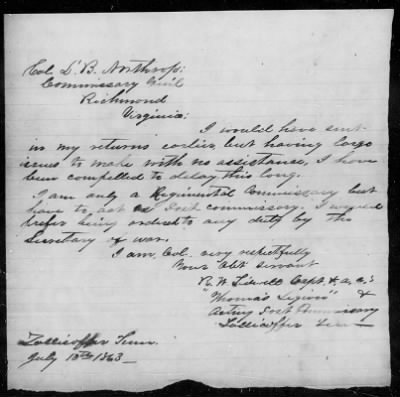 Col. L. B. Northrop:
Commissary Gen'l
Richmond
Virginia:
I would have sent
in my returns earlier but having large
issues to make with no assistance, I have
been compelled to delay this long.
I am only a Regimental Commissary but
have to act as Post commissary. I would
prefer being ordered to any duty by the
Secretary of war.
I am, Col. very respectfully
Your Obt servant
R. W. Capt. & a. c. s
"Thomas Legion" &
Acting Post Commissary
Zollicoffer Tenn
Zollicoffer Tenn.
July 13th 1863